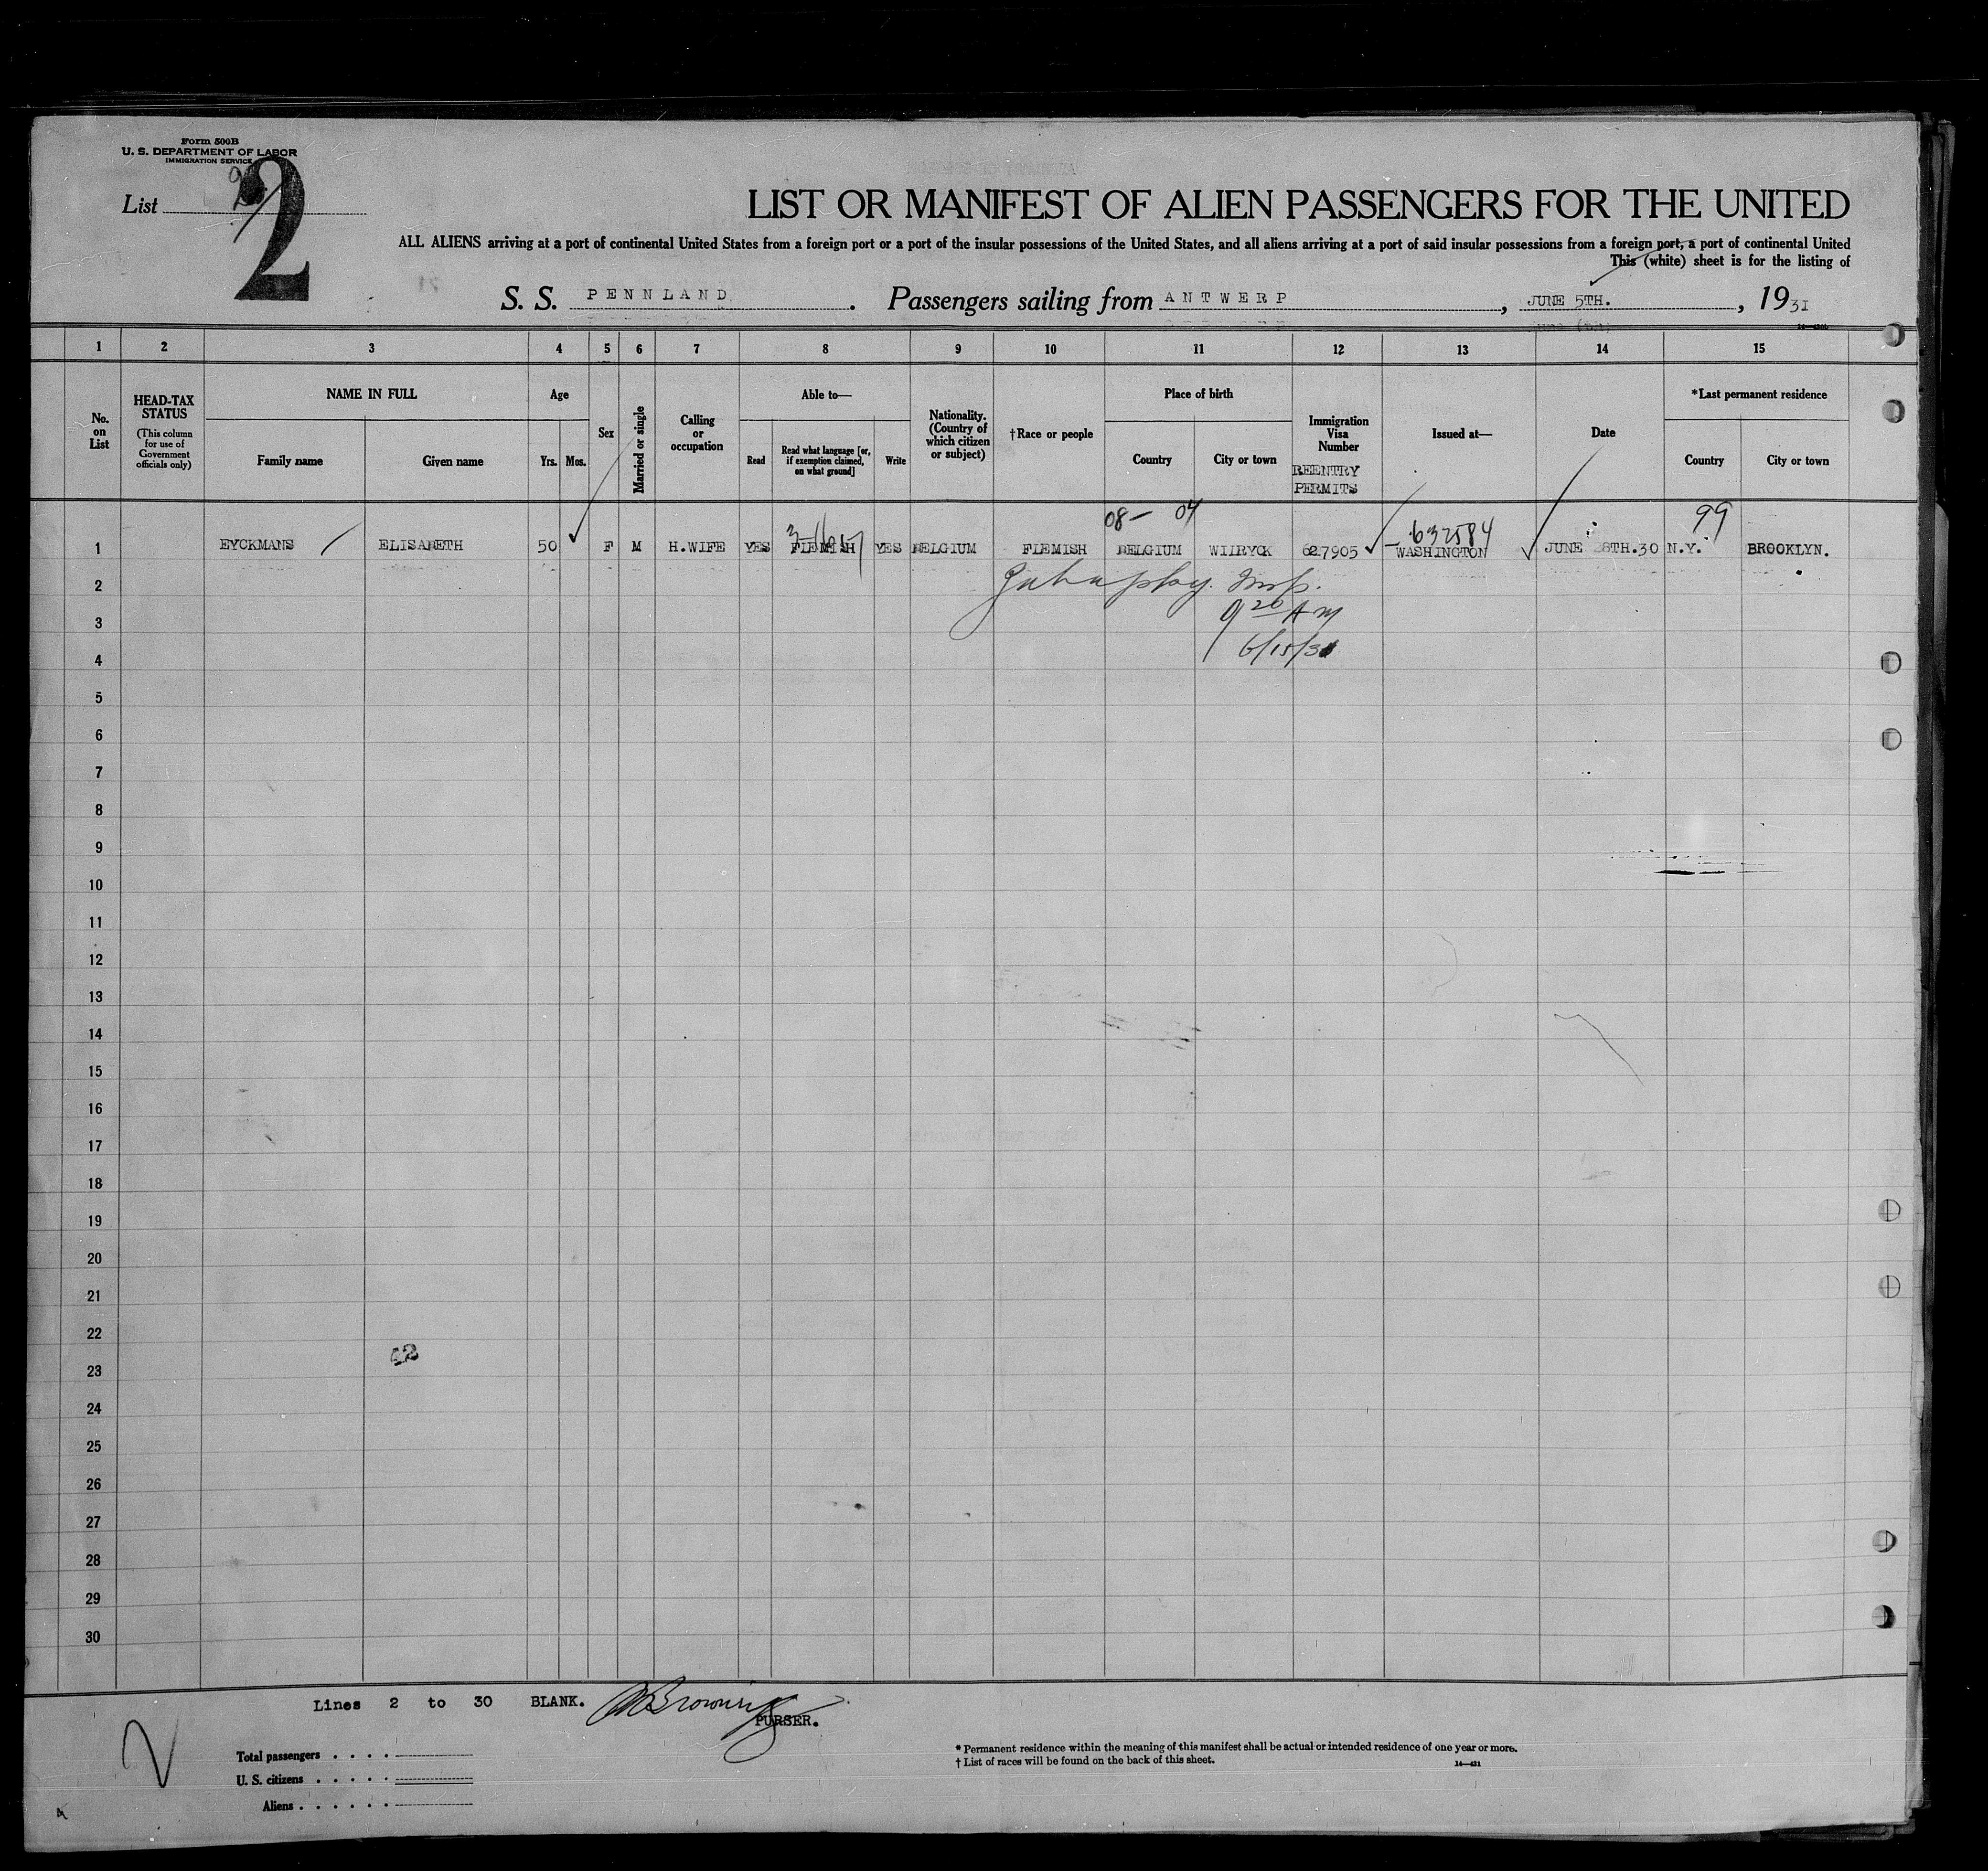 Form 500B
U. S. DEPARTMENT OF LABOR
IMMIGRATION SERVICE
List
2
LIST OR MANIFEST OF ALIEN PASSENGERS FOR THE UNITED
ALL ALIENS arriving at a port of continental United States from a foreign port or a port of the insular possessions of the United States, and all aliens arriving at a port of said insular possessions from a foreign port, a port of continental United
This (white) sheet is for the listing of
S. S. PENNLAND. Passengers sailing from ANTWERP, JUNE 5TH., 1931
1 2 3 4 5 6 7 8 9 10 11 12 13 14 15
No. on List
HEAD-TAX STATUS
(This column for use of Government officials only)
NAME IN FULL
Family name
Given name
Age
Yrs. Mos.
Sex
Married or single
Calling or occupation
Able to—
Read
Read what language [or, if exemption claimed, on what ground]
Write
Nationality. (Country of which citizen or subject)
†Race or people
Place of birth
Country
City or town
Immigration Visa Number
REENTRY PERMITS
Issued at—
Date
*Last permanent residence
Country
City or town
08— 04 632584 99
1 EYCKMANS ELISABETH 50 F M H.WIFE YES FLEMISH YES BELGIUM FLEMISH BELGIUM WILRYCK 627905 WASHINGTON JUNE 28TH.30 N.Y. BROOKLYN.
2 Insp.
3 9 20 AM
4 6/15/31
5
6
7
8
9
10
11
12
13
14
15
16
17
18
19
20
21
22
42
23
24
25
26
27
28
29
30
Lines 2 to 30 BLANK.
PURSER.
Total passengers . . . .
U. S. citizens . . . . .
Aliens . . . . . .
* Permanent residence within the meaning of this manifest shall be actual or intended residence of one year or more.
† List of races will be found on the back of this sheet.
14—421